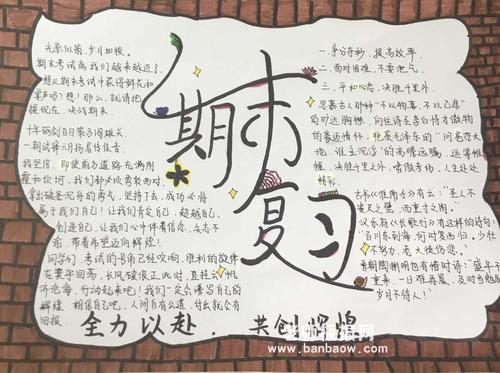 光影似箭，岁月如梭。
期末考试离我们越来越近了，
想从期末考试中获得鲜花和
掌声吗？想！那么，就请把
握现在，决战期末。
十年砺剑百日策马闯雄关
一朝试锋六月扬眉传佳音
我坚信，即使前方道路充满荆
棘和坎坷，我们都必须勇敢面对，
拿出破釜沉舟的勇气，坚持下去，成功必将
属于我们自己！让我们肯定自己，超越自己，
创造自己，让我们心中伴着信念，矢志不
前，带着希望迈向辉煌！
同学们，考试的号角已经吹响，胜利的歌伴
在寰宇回荡，长风破浪正此时，直挂云帆
济沧海，行动起来吧！我们一定会谱写自己的
辉煌，相信自己吧，人间自有公道，付出就会有
回报。
期末
复习
一．争分夺秒，提高效率．
二．面对困难，不要泄气．
三．平和心态，决胜千里外．
思慕古人那种“不以物喜，不以己悲”
的旷达胸襟，向往诗圣李白恃才傲物
的豪迈情怀，艳羡毛泽东的“问苍茫大
地，谁主沉浮”的高瞻远瞩，运筹帷
幄，决胜千里之外，啸傲考场，人生处处
精彩．
古书《淮南子》有云：“圣人不
贵尺之璧，而重寸之阴。”
汉乐府《长歌行》有这样的诗句：
“百川东到海，何时复西归，少壮
不努力，老大徒伤悲。
晋朝陶渊明也有惜时诗：“盛年不
重来，一日难再晨，及时当勉励
岁月不待人！”
全力以赴．共创辉煌
www.banbaow.com